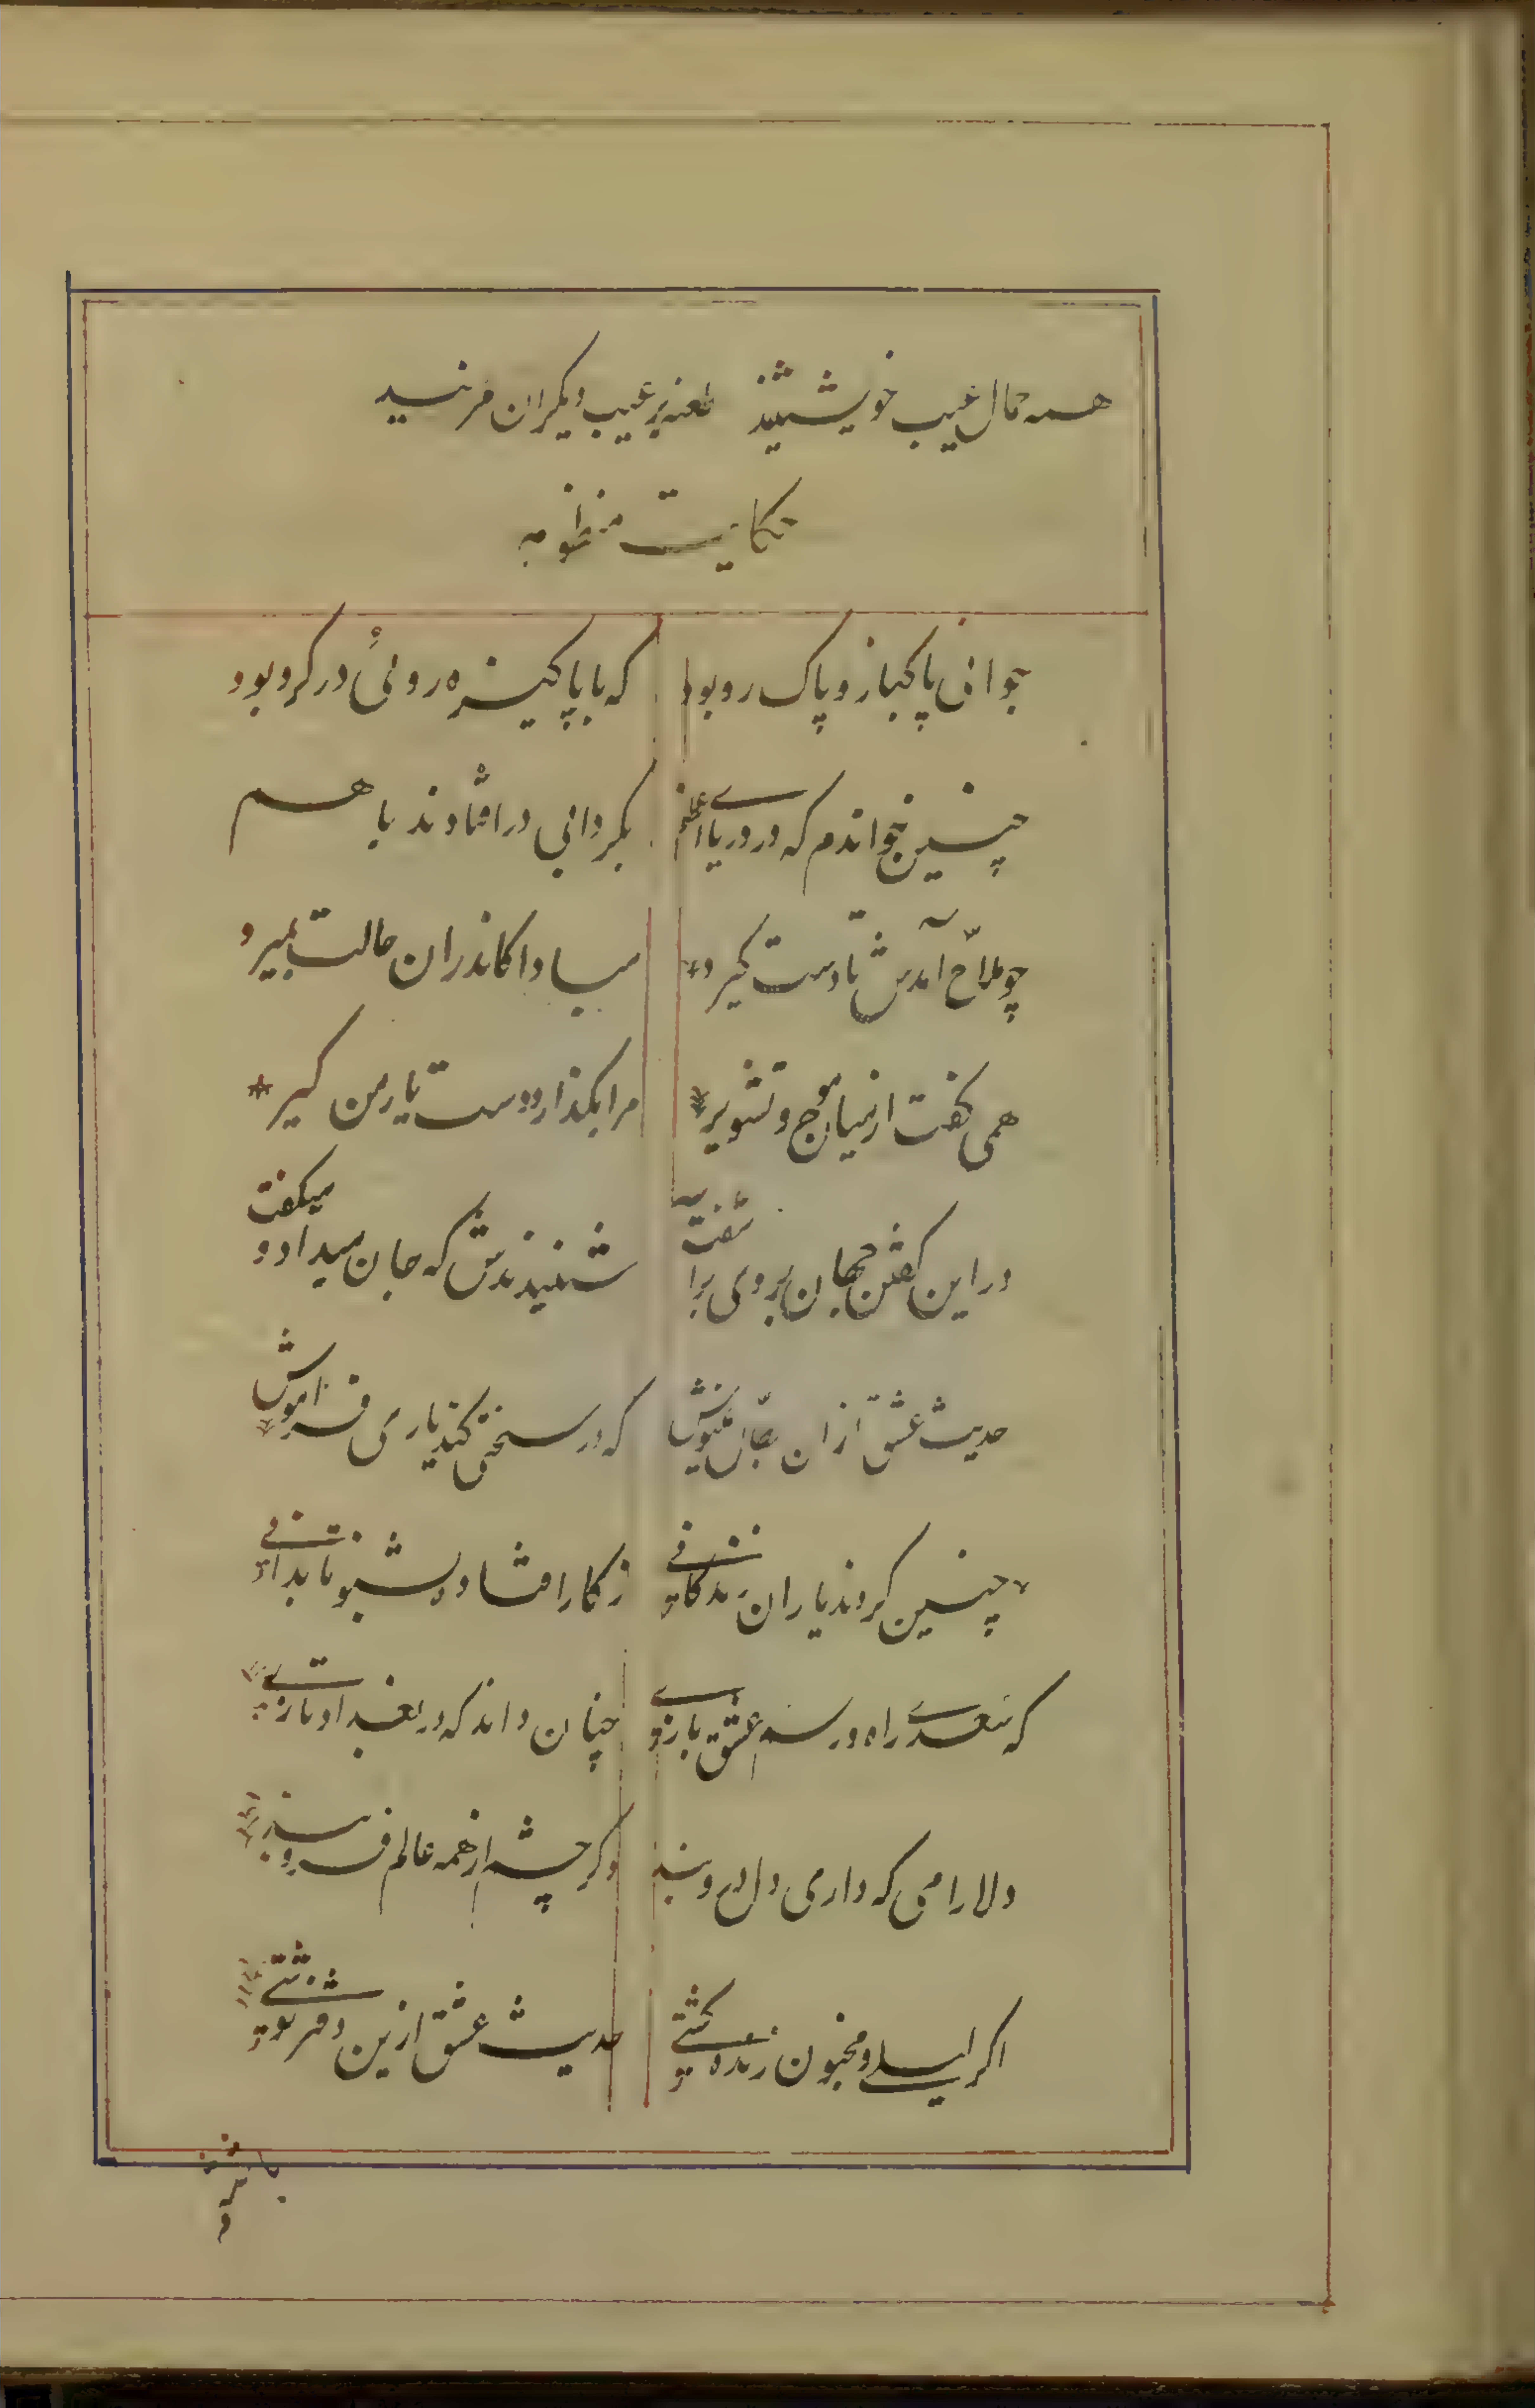 همه حمال عیب خویشتنند طعنه بر عیب دیکران مزنید
حکایت منظومه
جوانی پاکباز و پاک رو بود که با پاکیزه روئی در کرو بود
چنین خواندم که در دریای اعظم بکردابی در افتادند با هم
چو ملاّح آمدش تا دست کیرد مبادا کاندران حالت بمیرد
همی کفت از میان موج و تشویر مرا بکذار و دست یار من کیر
در این کفتن جهان بر وی برآشفت شنیدندش که جان میداد و میکفت
حدیث عشق از ان بطّال منیوش که در سختی کند یاری فراموش
چنین کردند یاران زندکانی ز کار افتاده بشنو تا بدانی
که سعدی راه و رسم عشق بازی چنان داند که در بغداد تازی
دلارامی که داری دل در و بند وکر چشم از همه عالم فرو بند
اکر لیلی و مجنون زنده کشتی حدیث عشق ازین دفتر نوشتی